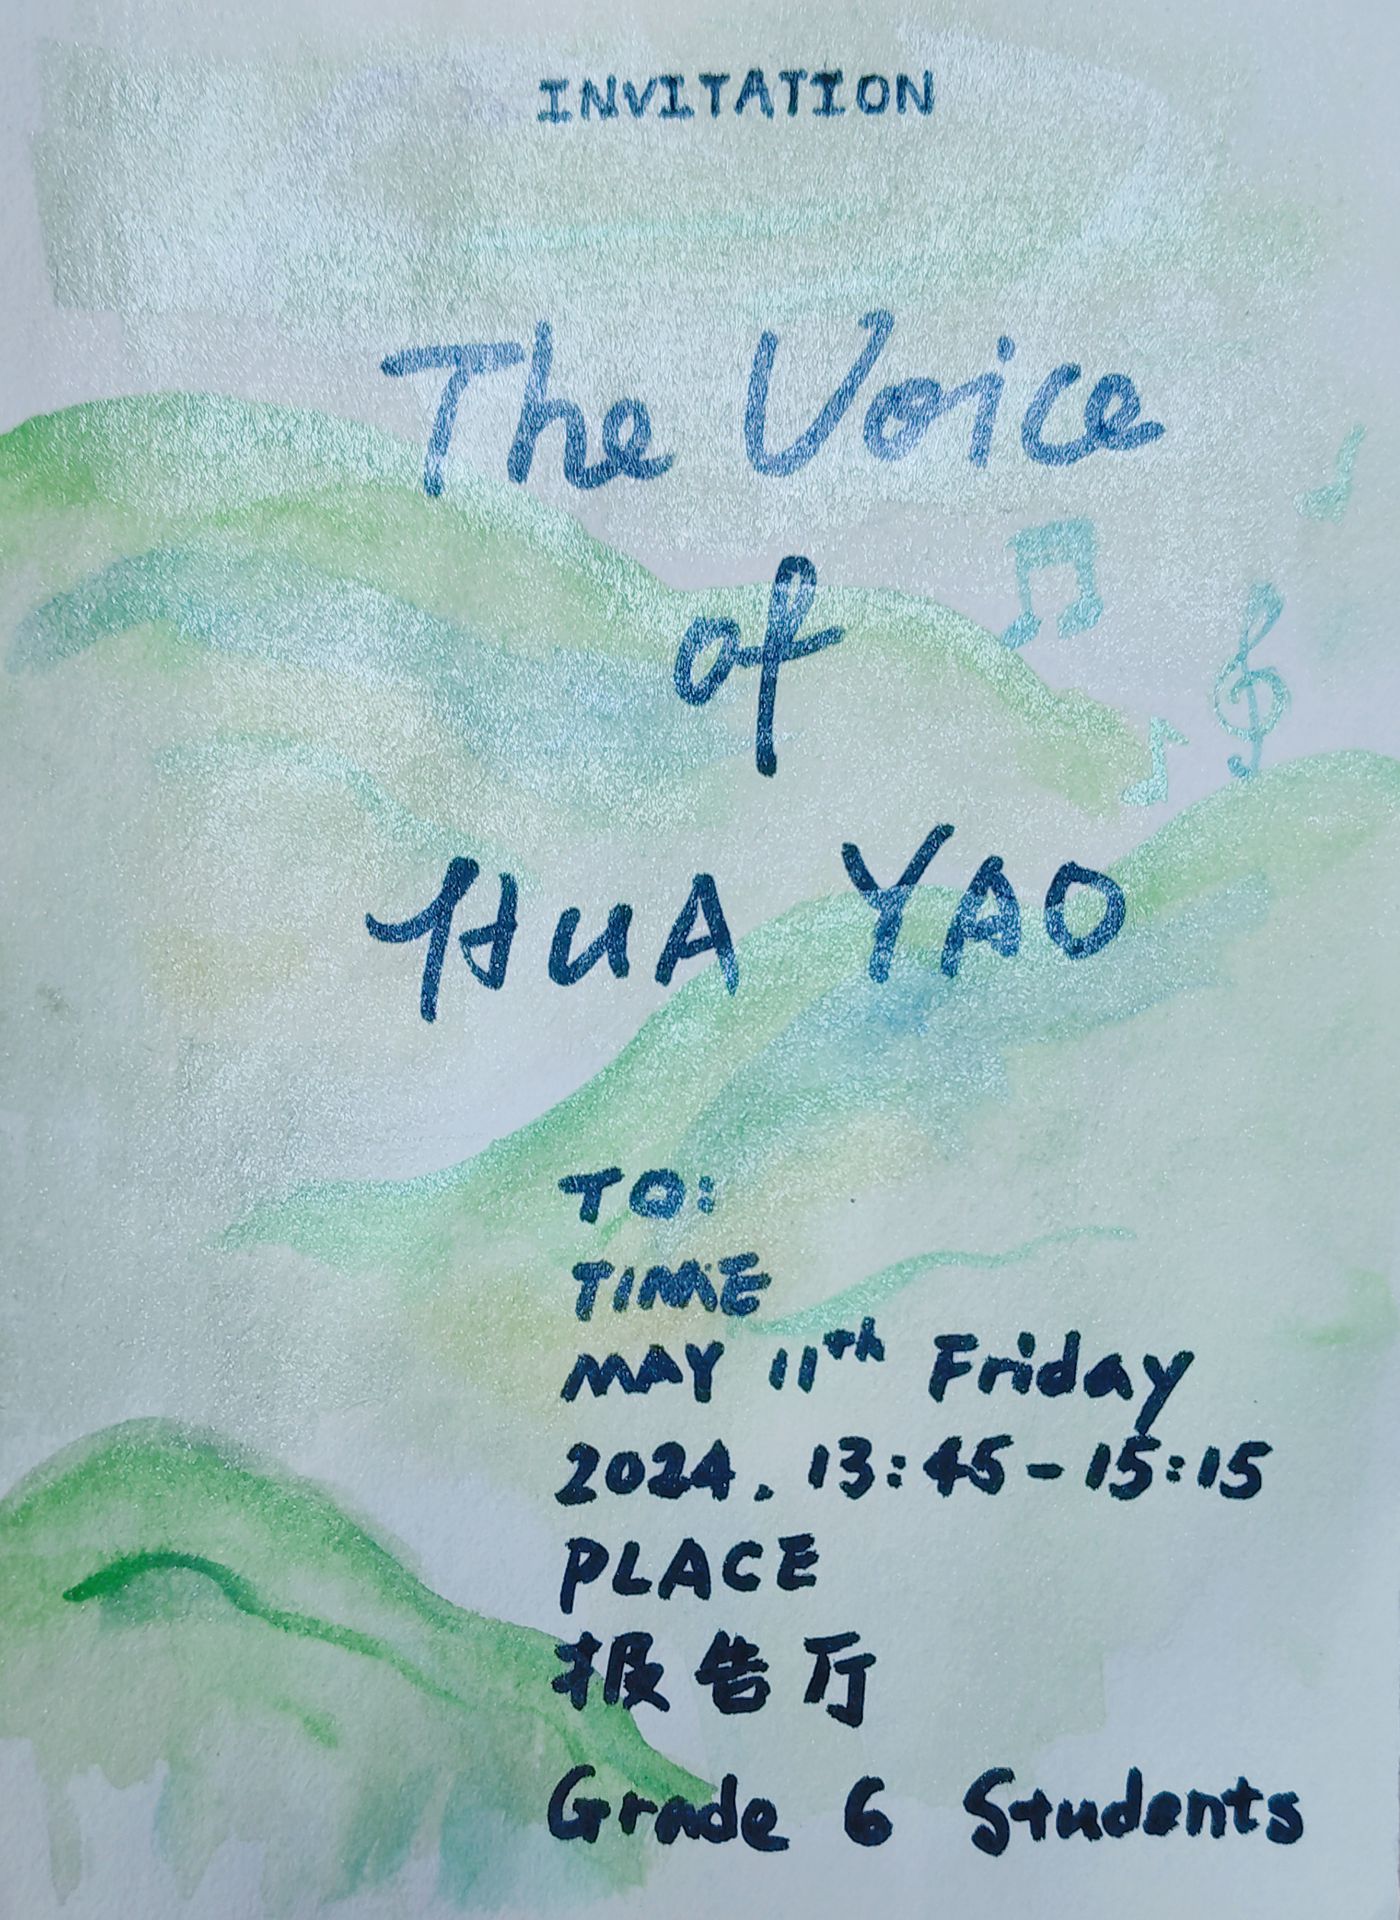 INVITATION
The Voice
of
HUA YAO
TO:
TIME
MAY 11th Friday
2024. 13:45-15:15
PLACE
报告厅
Grade 6 Students